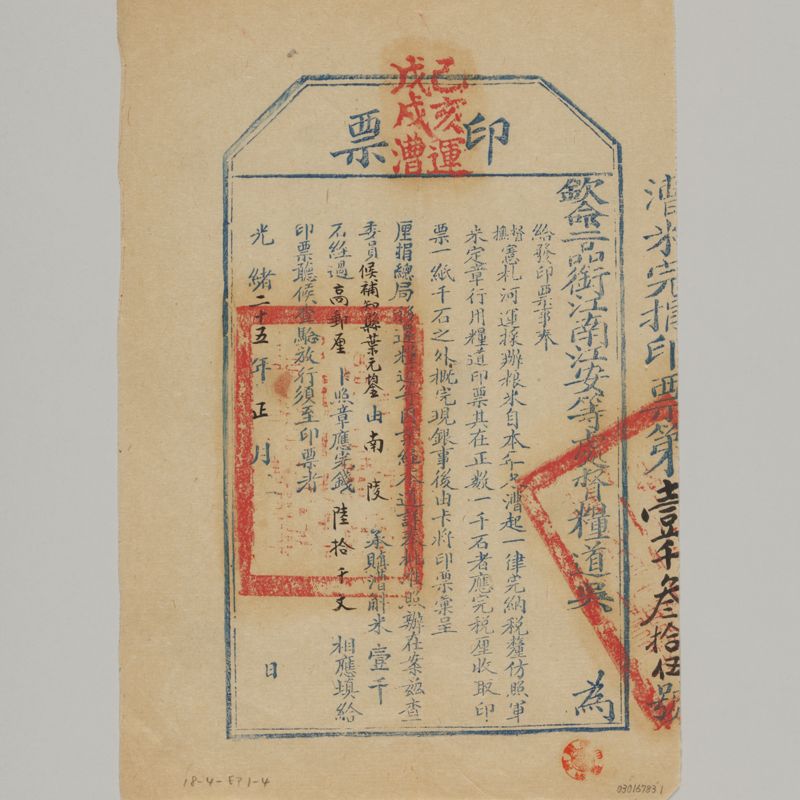 漕米完捐印票第壹千叁拾伍號
印票
己亥運
戊戌漕
欽命二品銜江南江安等處督糧道吳 為
給發印票事奉
督撫憲札河運採辦粮米自本年冬漕起一律完納税釐仿照軍
米定章行用糧道印票其在正數一千石者應完税厘收取印
票一紙千石之外概完現銀事後由卡將印票彙呈
厘捐總局 照辦在案兹查
委員候補知縣葉元鋆由南陵 承購漕斛米壹千
石經過高郵厘卡照章應完錢陸拾千文 相應填給
印票聽候查驗放行須至印票者
光緒二十五年正月 日
18-4-EP1-4
03016783 1